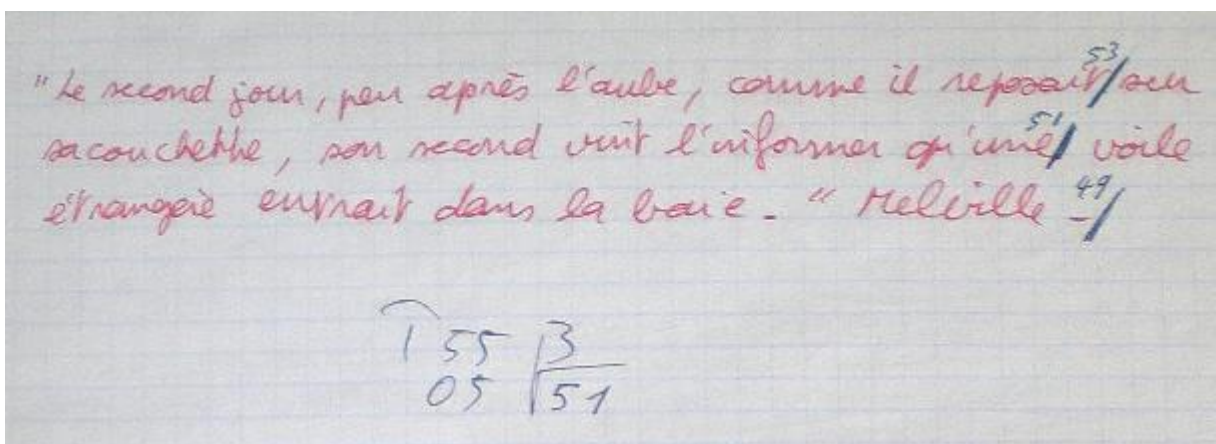 "Le second jour, peu après l'aube, comme il reposait/sur
53
sa couchette, son second vint l'informer qu'une/ voile
51
étrangère entrait dans la baie. " Melville -/
49
155 3
05 51